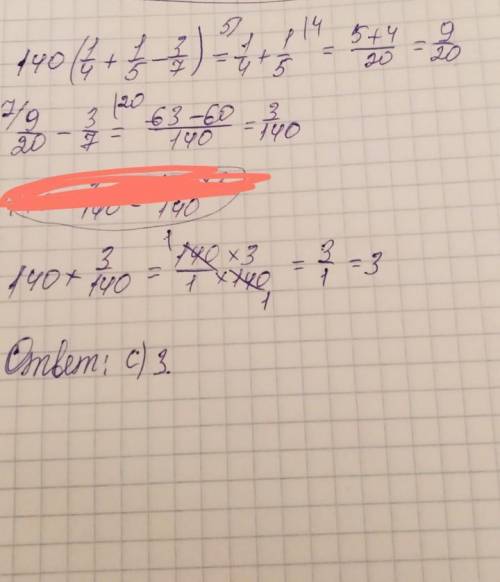 140(1/4 + 1/5 - 3/7) = ⁵⁾1/4 + 1/5 |4 = 5+4/20 = 9/20
⁷⁾9/20 - 3/7 |20 = 63-60/140 = 3/140
140 140
140 × 3/140 = 140 × 3/1 × 140 = 3/1 = 3
Ответ: с) 3.